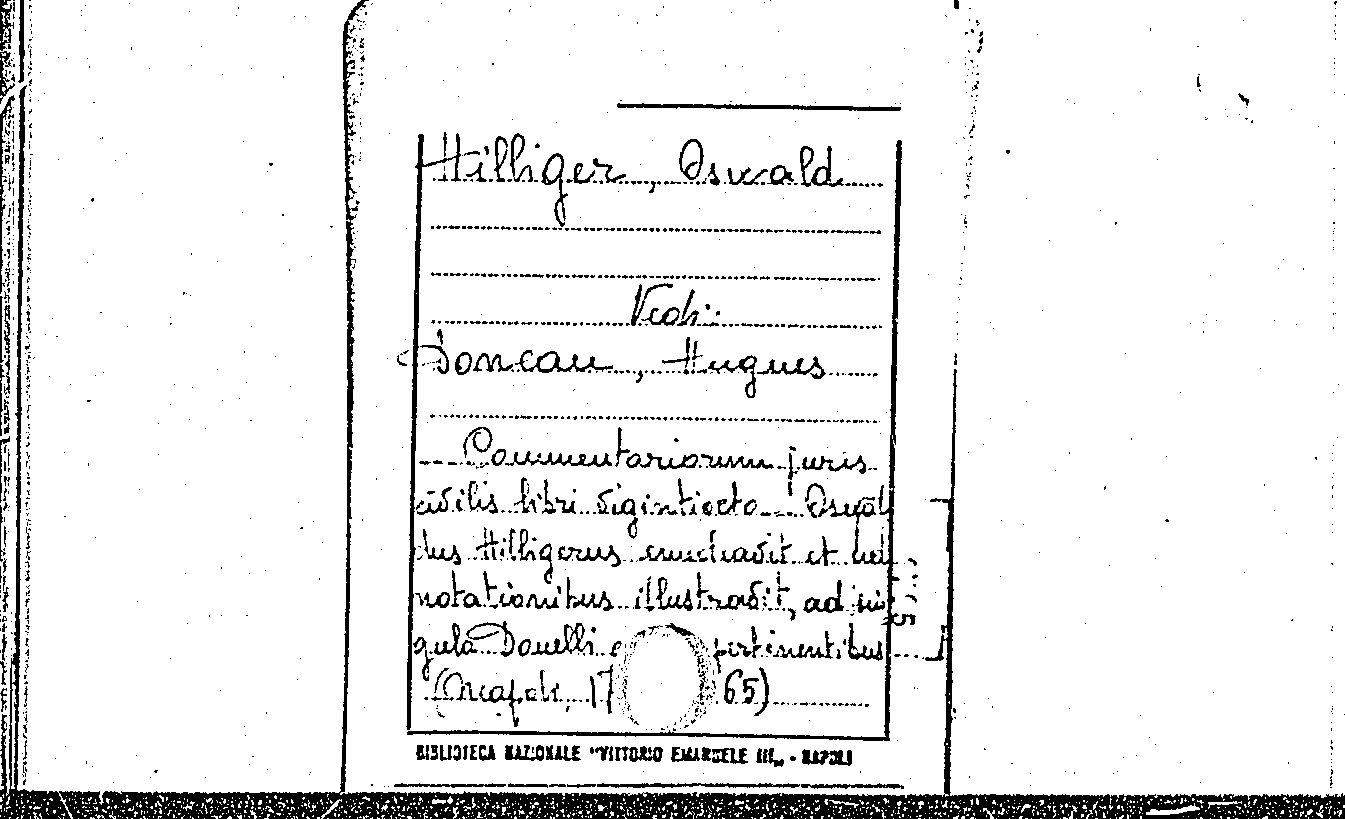 Hilliger, Oswald
Vedi:
Doneau, Hugues
Commentariorum juris
civilis libri vigintiocto. Osval
dus Hilligerus enucleavit et
notationibus illustravit, ad sin
gula Donelli pertinentibus
(Napoli, 17 65)
BIBLIOTECA NAZIONALE "VITTORIO EMANUELE III„ - NAPOLI